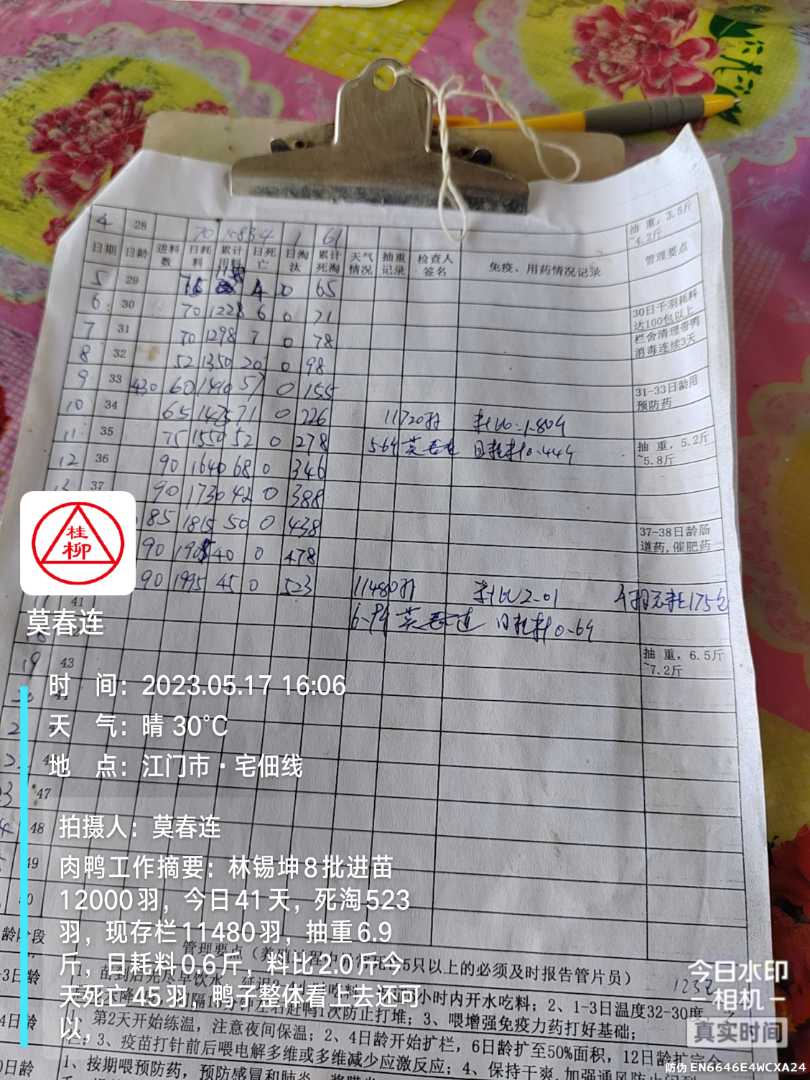 4 28 70 1 61
抽重,3.5斤
~4.2斤
日期 日龄 进料数 日耗料 累计用料 日死亡 日淘汰 累计死淘 天气情况 抽重记录 检查人签名 免疫、用药情况记录 管理要点
5 29 4 0 65
6 30 70 1228 6 0 71
30日千羽耗料
达100包以上
7 31 70 1298 7 0 78
栏舍清理带鸭
消毒连续3天
8 32 52 1350 20 0 98
9 33 430 60 1410 57 0 155
31-33日龄用
预防药
10 34 65 1475 71 0 226 11720羽 料比0.1.804
11 35 75 1550 52 0 278 5.6斤 莫春连 日耗料0.44斤
抽重,5.2斤
~5.8斤
12 36 90 1640 68 0 346
37 90 1730 42 0 388
85 1815 50 0 438
37-38日龄肠
道药,催肥药
90 1905 40 0 478
90 1995 45 0 523 11480羽 料比2.01
41 6.9斤 莫春连 日耗料0.6斤
抽重,6.5斤
~7.2斤
19 43
47
48
49
桂柳
莫春连
时 间:2023.05.17 16:06
天 气:晴 30℃
地 点:江门市·宅佃线
拍摄人:莫春连
肉鸭工作摘要:林锡坤8批进苗
12000羽,今日41天,死淘523
羽,现存栏11480羽,抽重6.9
斤,日耗料0.6斤,料比2.0斤今
天死亡45羽,鸭子整体看上去还可
以,
龄阶段
管理要点
5只以上的必须及时报告管片员)
小时内开水吃料;2、1-3日温度32-30度,
1、第2天开始练温,注意夜间保温;2、4日龄开始扩栏,6日龄扩至50%面积,12日龄扩完全
3、疫苗打针前后喂电解多维或多维减少应激反应;4、保持干爽,加强通风防止
1、按期喂预防药,预防感冒和肺炎
次防止打堆;3、喂增强免疫力药打好基础;
今日水印
相机
真实时间
防伪 EN6646E4WCXA24